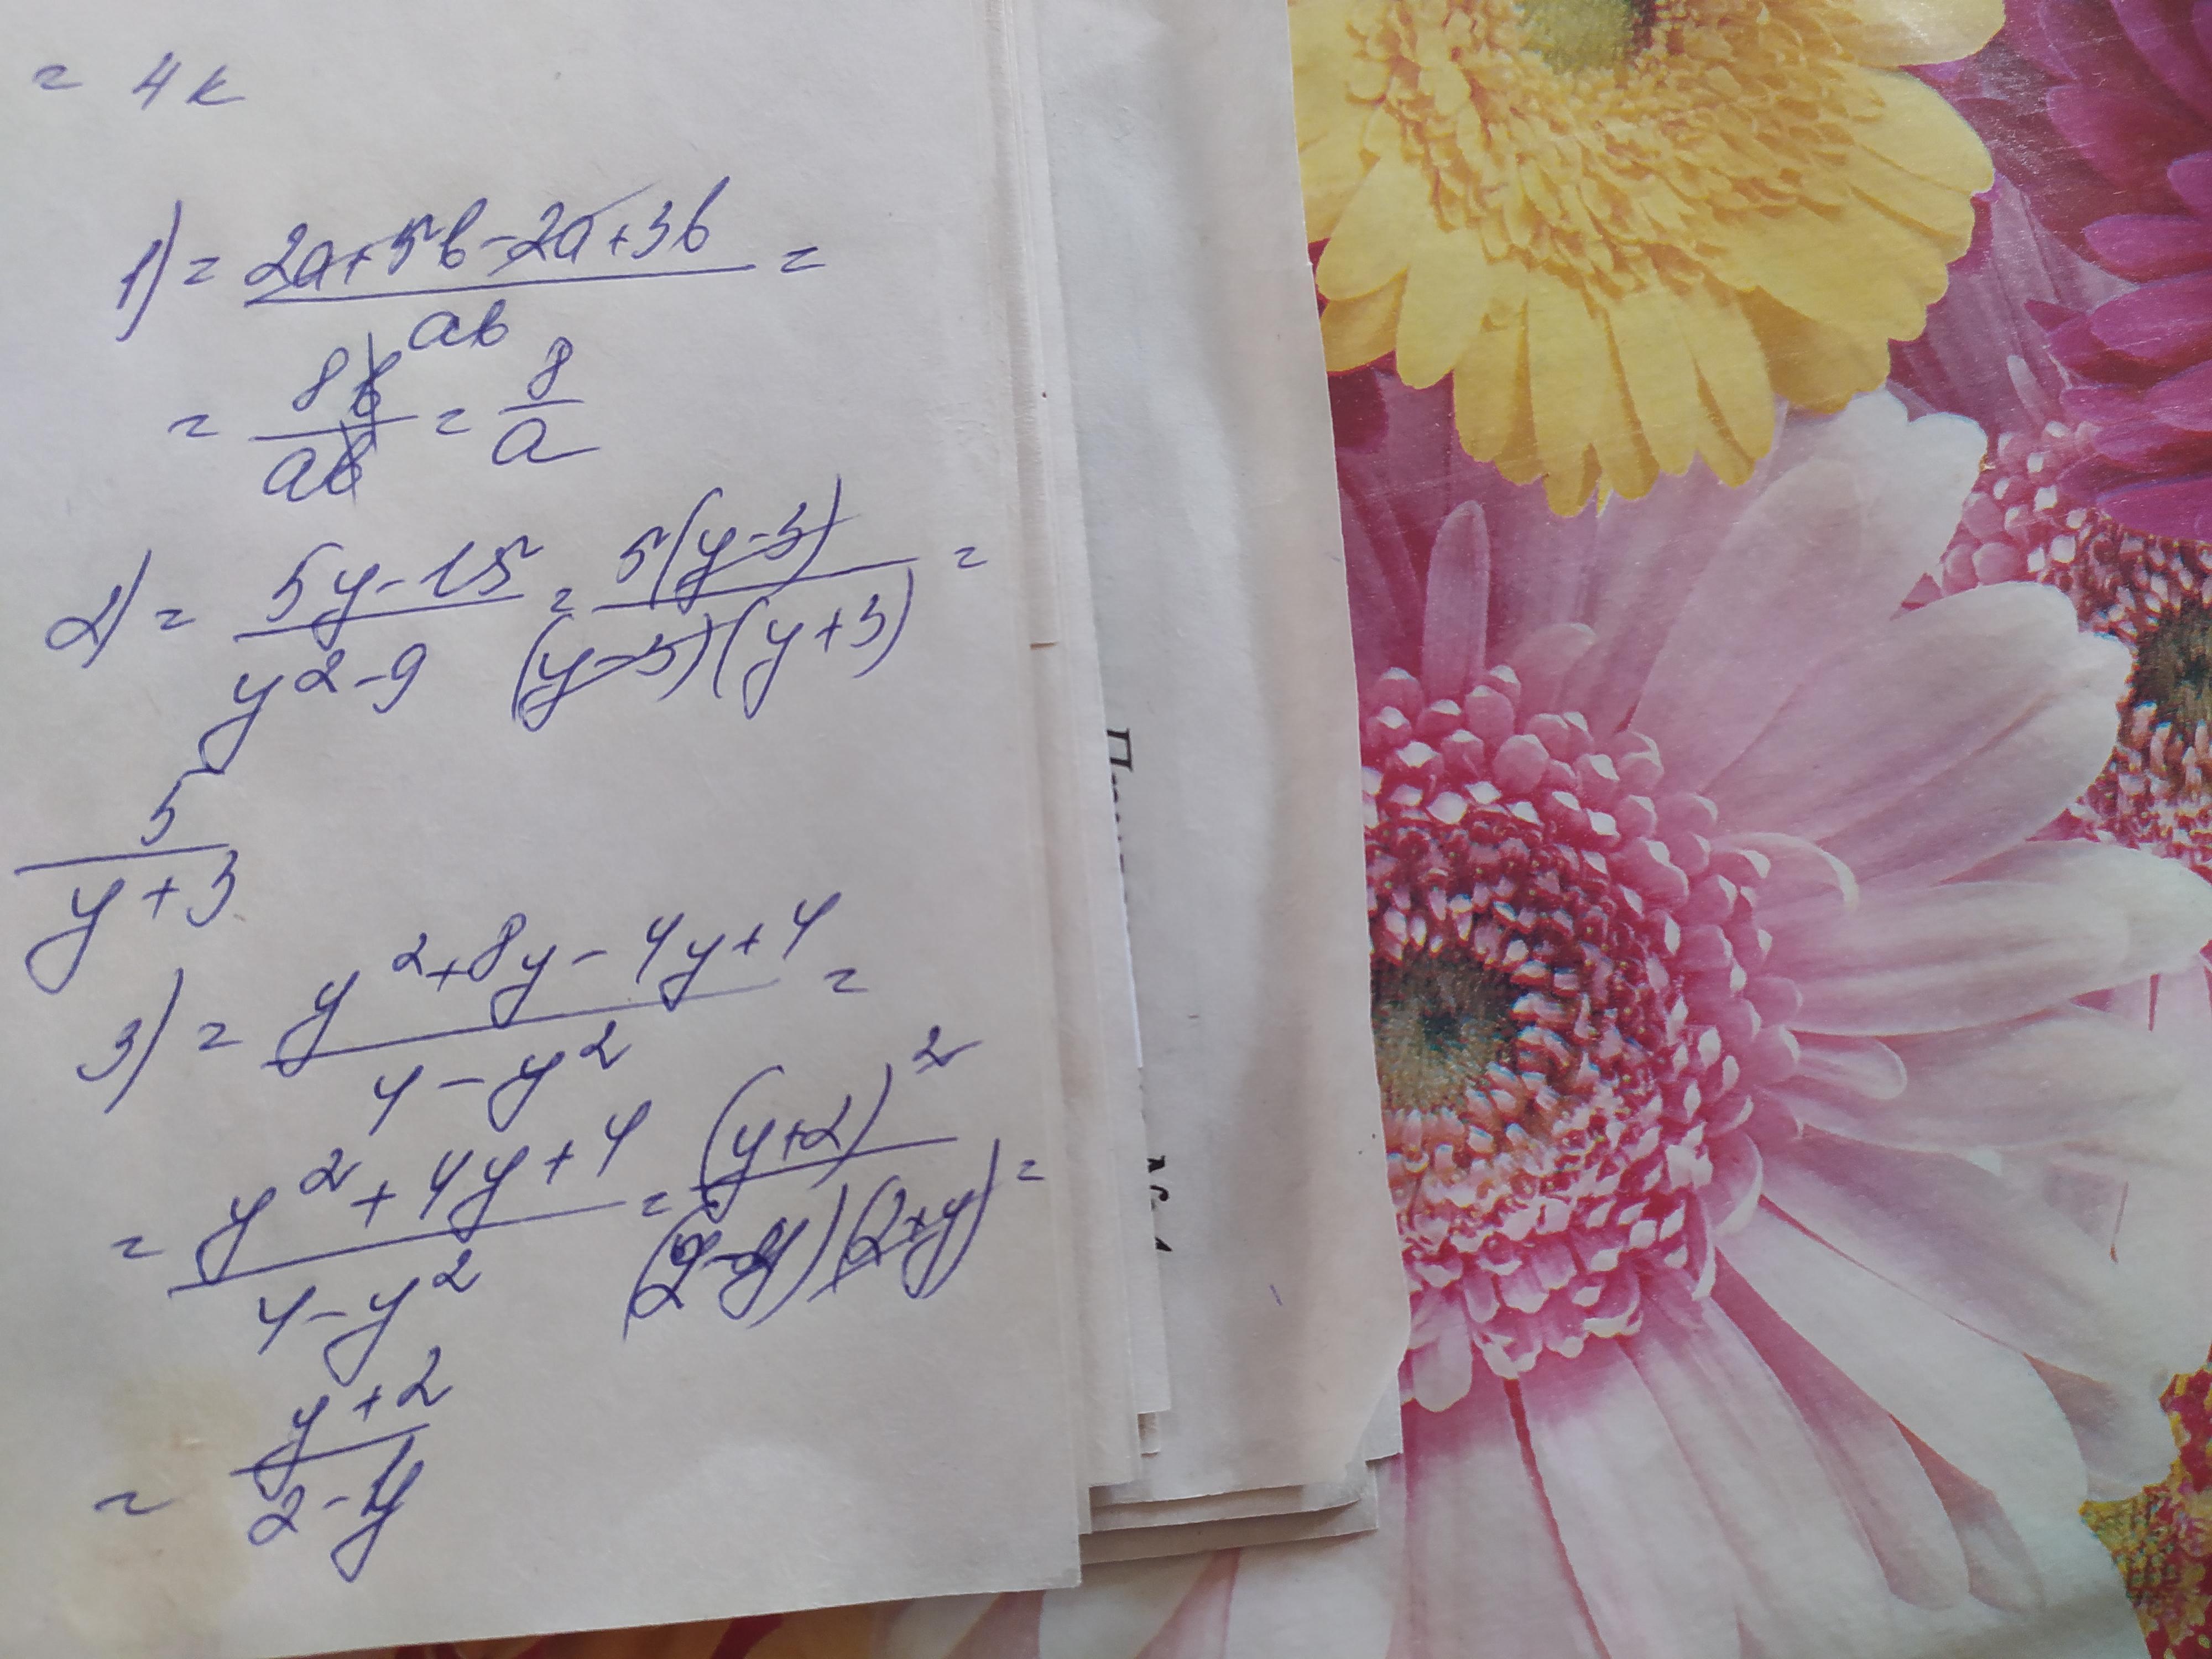 = 4k
1) = (2a+5b-2a+3b)/(ab) =
= (8b)/(ab) = 8/a
2) = (5y-15)/(y²-9) = (5(y-3))/((y-3)(y+3)) =
5/(y+3)
3) = (y²+8y-4y+4)/(4-y²) =
= (y²+4y+4)/(4-y²) = (y+2)²/((2-y)(2+y)) =
= (y+2)/(2-y)